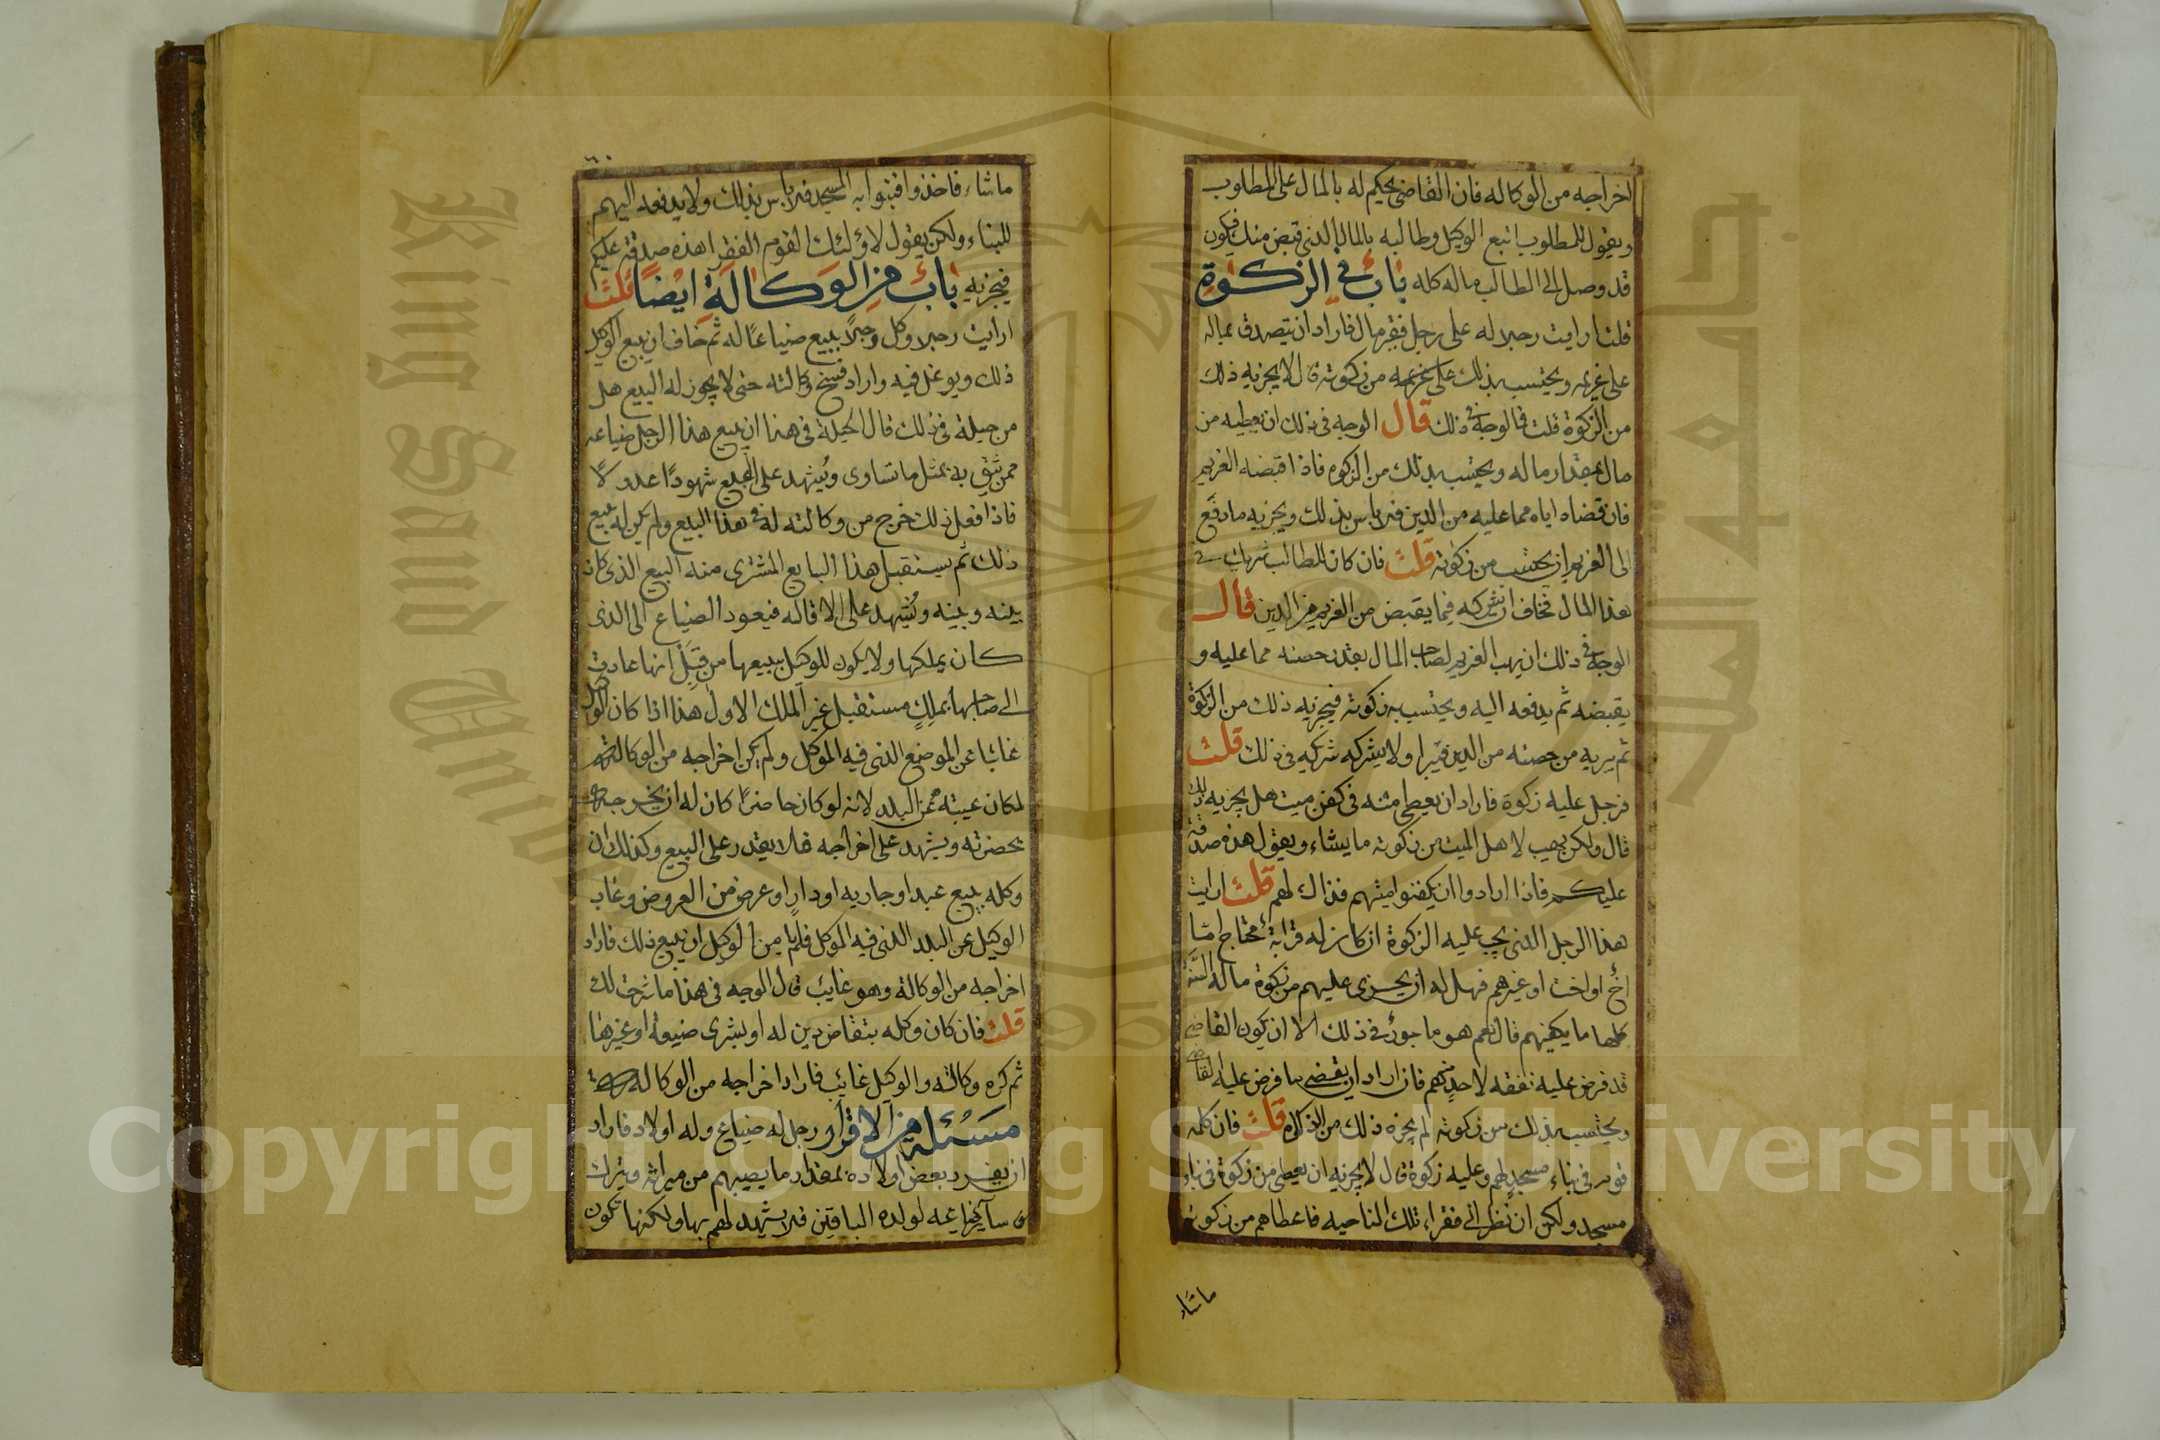 اخراجه من الوكاله فان القاضى يحكم له بالمال على المطلوب
ويقول للمطلوب اتبع الوكيل وطالبه بالمال الذى قبض منك فيكون
قد وصل الى الطالب ماله كله باب فى الزكوة
قلت ارايت رجلا له على رجل فقير مال فاراد ان يتصدق بماله
على غريمه ويحتسب بذلك على غريمه من زكوته قال لا يجزيه ذلك
من الزكوة قلت فالوجه فى ذلك قال الوجه فى ذلك ان يعطيه من
مال بمقدار ماله ويحتسب بذلك من الزكوه فاذا اقبضه الغريم
فان قضاه اياه مما عليه من الدين فلا باس بذلك ويجزيه ما دفع
الى الغريم ان يحتسب من زكوته قلت فان كان للطالب شريك فى
هذا المال فخاف ان يشركه فيما يقبض من الغريم من الدين قال
الوجه فى ذلك ان يهب الغريم لصاحب المال بقدر حصته مما عليه و
يقبضه ثم يدفعه اليه ويحتسب به زكوته فيجزيه ذلك من الزكوة
ثم يبريه من حصته من الدين فيبرا ولا يشركه شريكه فى ذلك قلت
فرجل عليه زكوة فاراد ان يعطى منه فى كفن ميت هل يجزيه ذلك
قال ولكن يهب لاهل الميت من زكوته ما يشاء ويقول هذه صدقة
عليكم فاذا ارادوا ان يكفنوا ميتهم فذاك لهم قلت ارايت
هذا الرجل الذى يجب عليه الزكوة ان كان له قرابة محتاج اما
اخ او اخت او غيرهم فهل له ان يجزى عليهم من زكوة ماله السنة
كلها ما يكفيهم قال نعم هو ماجور فى ذلك الا ان يكون القاضى
قد فرض عليه نفقه لاحد منهم فان اراد ان يقضى ما فرض عليه القاضى
ويحتسب بذلك من زكوته لم يجزه ذلك من الزكاة قلت فان كلمه
قوم فى بناء مسجد لهم وعليه زكوة قال لا يجزيه ان يعطى من زكوة فى بناء
مسجد ولكن ان نظر الى فقراء تلك الناحيه فاعطاهم من زكوته
ما شاء
ما شاء فاخذوا فبنوا به المسجد فلا باس بذلك ولا يدفعه اليهم
للبناء ولكن يقول لاولئك القوم الفقرا هذه صدقة عليكم
فيجزيه باب من الوكالة ايضا قلت
ارايت رجلا وكل رجلا ببيع ضياعا له ثم خاف ان يبيع الوكيل
ذلك ويوغل فيه واراد فسخ وكالته حتى لا يجوز له البيع هل
من حيلة فى ذلك قال الحيلة فى هذا ان يبيع هذا الرجل ضياعه
ممن يثق به بمثل ما تساوى ويشهد على البيع شهودا عدولا
فاذا فعل ذلك خرج من وكالته له فى هذا البيع ولم يكن له بيع
ذلك ثم يستقبل هذا البايع المشترى منه البيع الذى كان
بينه وبينه ويشهد على الاقاله فيعود الضياع الى الذى
كان يملكها ولا يكون للوكيل بيعها من قبل انها عادت
الى صاحبها بملك مستقبل غير الملك الاول هذا اذا كان الوكيل
غائبا عن الموضع الذى فيه الموكل ولم يكن اخراجه من الوكالة
لمكان غيبته عن البلد لانه لو كان حاضرا كان له ان يخرجه
بحضرته ويشهد على اخراجه فلا يقدر على البيع وكذلك ان
وكله ببيع عبد او جاريه او دار او عرض من العروض وغاب
الوكيل عن البلد الذى فيه الموكل فلم يامن الوكيل ان يبيع ذلك فاراد
اخراجه من الوكالة وهو غايب قال الوجه فى هذا ما شرحت لك
قلت فان كان وكله بتقاض دين له او بشرى ضيعة او غيرها
ثم كره وكالته والوكيل غائب فاراد اخراجه من الوكاله
مسئلة من الاقرار رجل له ضياع وله اولاد فاراد
ان يفرد بعض اولاده بمقدار ما يصيبهم من ميراثه ويترك
سائر ضياعه لولده الباقين فلا يشهد لهم بها ولكنها تكون
King Saud University
جامعة الملك سعود
1957
Copyright © King Saud University